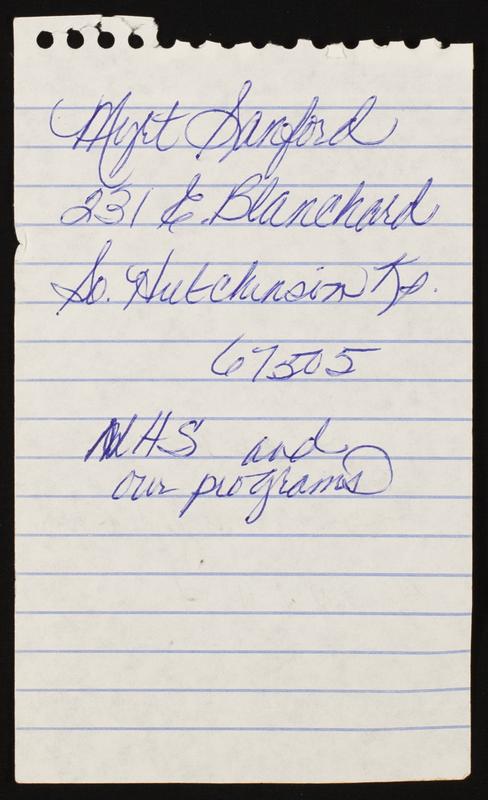 Myrt Sanford
231 E. Blanchard
So. Hutchinson Ks.
67505
NHS and
our programs